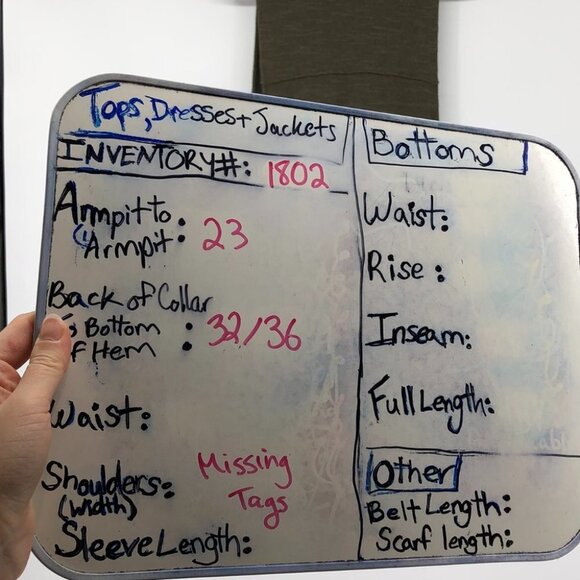 Tops, Dresses + Jackets
INVENTORY#: 1802
Armpit to
Armpit: 23
Back of Collar
Bottom : 32/36
Hem :
Waist:
Shoulders:
(width)
Missing
Tags
Sleeve Length:
Bottoms
Waist:
Rise :
Inseam:
Full Length:
Other
Belt Length:
Scarf length: